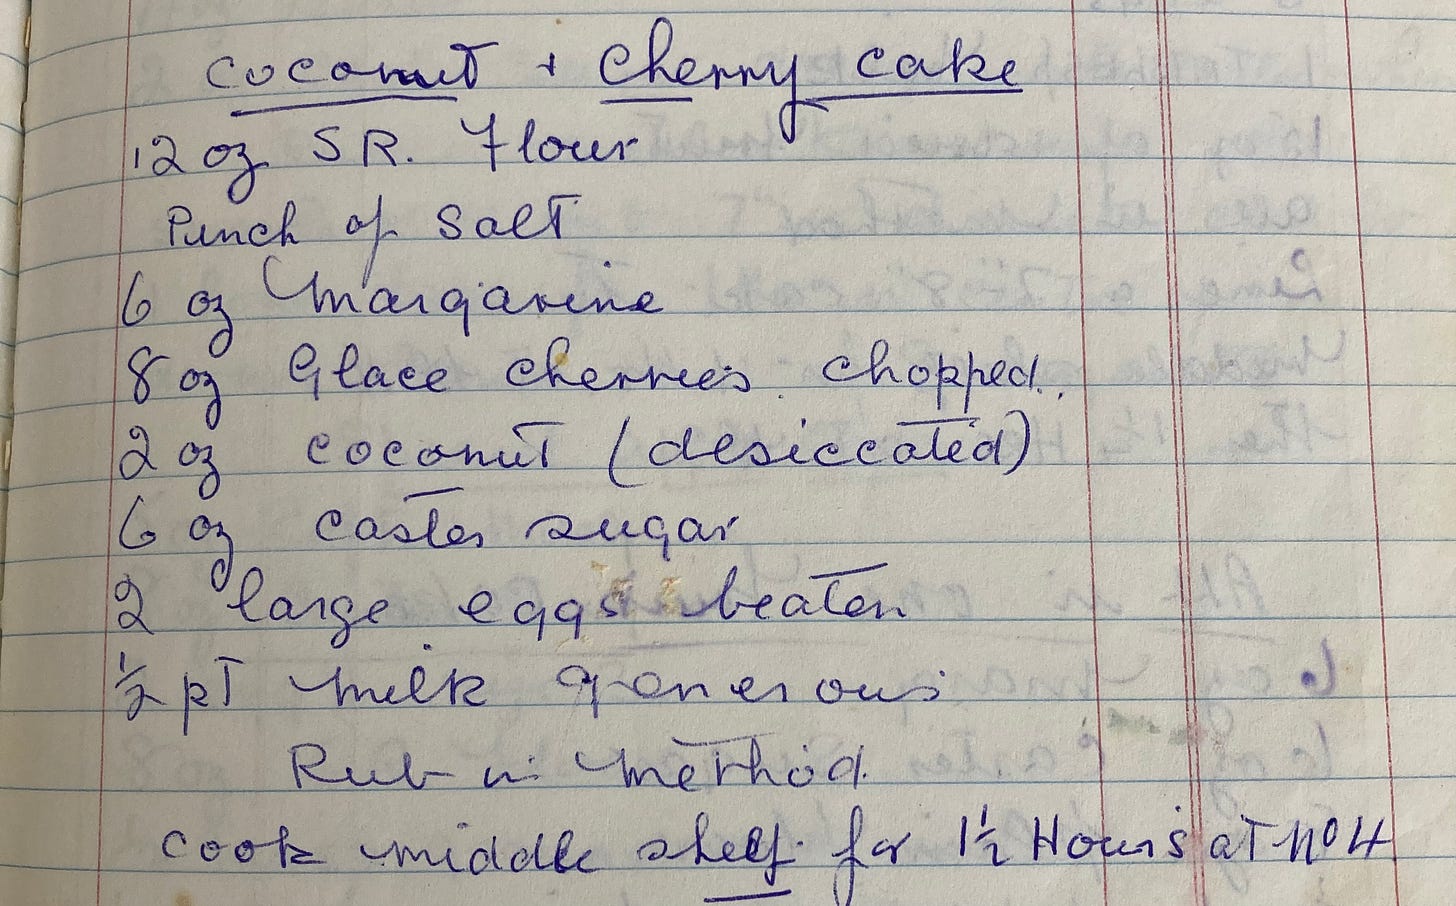 Coconut + Cherry cake
12 oz SR. Flour
Pinch of Salt
6 oz Margarine
8 oz Glace cherries chopped.
2 oz coconut (desiccated)
6 oz caster sugar
2 large eggs beaten
½ pt milk generous
Rub in method.
Cook middle shelf for 1½ Hours at No 4